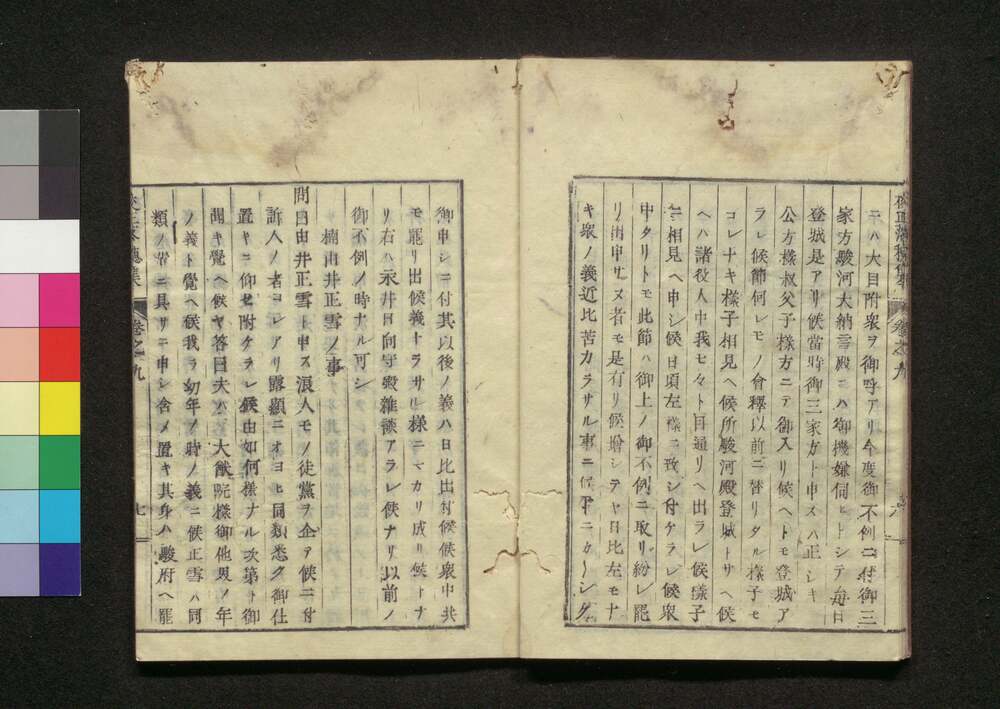 ニハ大目附衆ヲ御呼アリ今度御不例ニ付御三
家方駿河大納言殿ニハ御機嫌伺ヒトシテ毎日
登城是アリ候當時御三家カト申スハ正シキ
公方樣叔父子樣方ニテ御入リ候ヘトモ登城ア
ラレ候節何レモノ會釋以前ニ替リタル樣子モ
コレナキ樣子相見ヘ候所駿河殿登城トサヘ候
ヘハ諸役人中我モ々ト目通リヘ出ラレ候樣子
ニ相見ヘ申シ候日頃左樣ニ致シ付ケラレ候衆
中タリトモ此節ハ御上ノ御不例ニ取リ紛レ罷
リ出申サヌ者モ是有リ候增シテヤ日比左モナ
キ衆ノ義近比苦カラサル事ニ候
御申シニ付其以後ノ義ハ日比出付候侯衆中共
モ罷リ出候義トラサル樣ニマカリ成リ候トナ
リ右ハ永井日向守殿雜談アラレ候ナリ以前ノ
御不例ノ時ナル可シ
楠由井正雪ノ事
問曰由井正雪ト申ス浪人モノ徒黨ヲ企テ候ニ付
訴人ノ者コレアリ露顯ニオヨヒ同類悉ク御仕
置キニ仰セ附ケラレ候由如何樣ナル次第ト御
聞キ覺ヘ候ヤ答曰夫ハ大猷院樣御他界ノ年
ノ義ト覺ヘ候我ラ幼年ノ時ノ義ニ候正雪ハ同
類ノ輩ニ具サニ申シ含メ置キ其身ハ駿府ヘ罷
卷之九
七